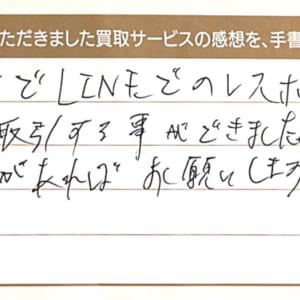 ただきました買取サービスの感想を、手書
でLINEでのレスポ
取引する事ができました
があれば お願いします